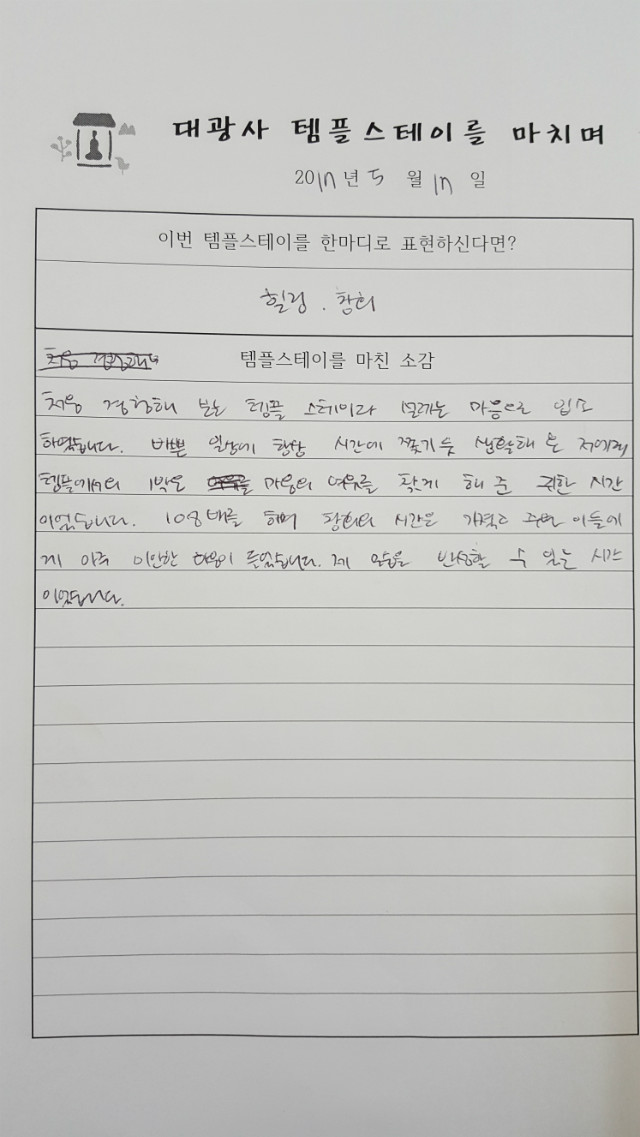 대광사 템플스테이를 마치며
2017년 5월 17일
이번 템플스테이를 한마디로 표현하신다면?
힐링. 참회
템플스테이를 마친 소감
처음 경험해 보는 템플 스테이라 설레는 마음으로 입소
하였습니다. 바쁜 일상에 항상 시간에 쫓기듯 생활해 온 저에게
템플에서의 1박은 마음의 여유를 찾게 해 준 귀한 시간
이었습니다. 108배를 하며 참회의 시간은 가족과 주변 이들에
게 아주 미안한 마음이 들었습니다. 제 모습을 반성할 수 있는 시간
이었습니다.